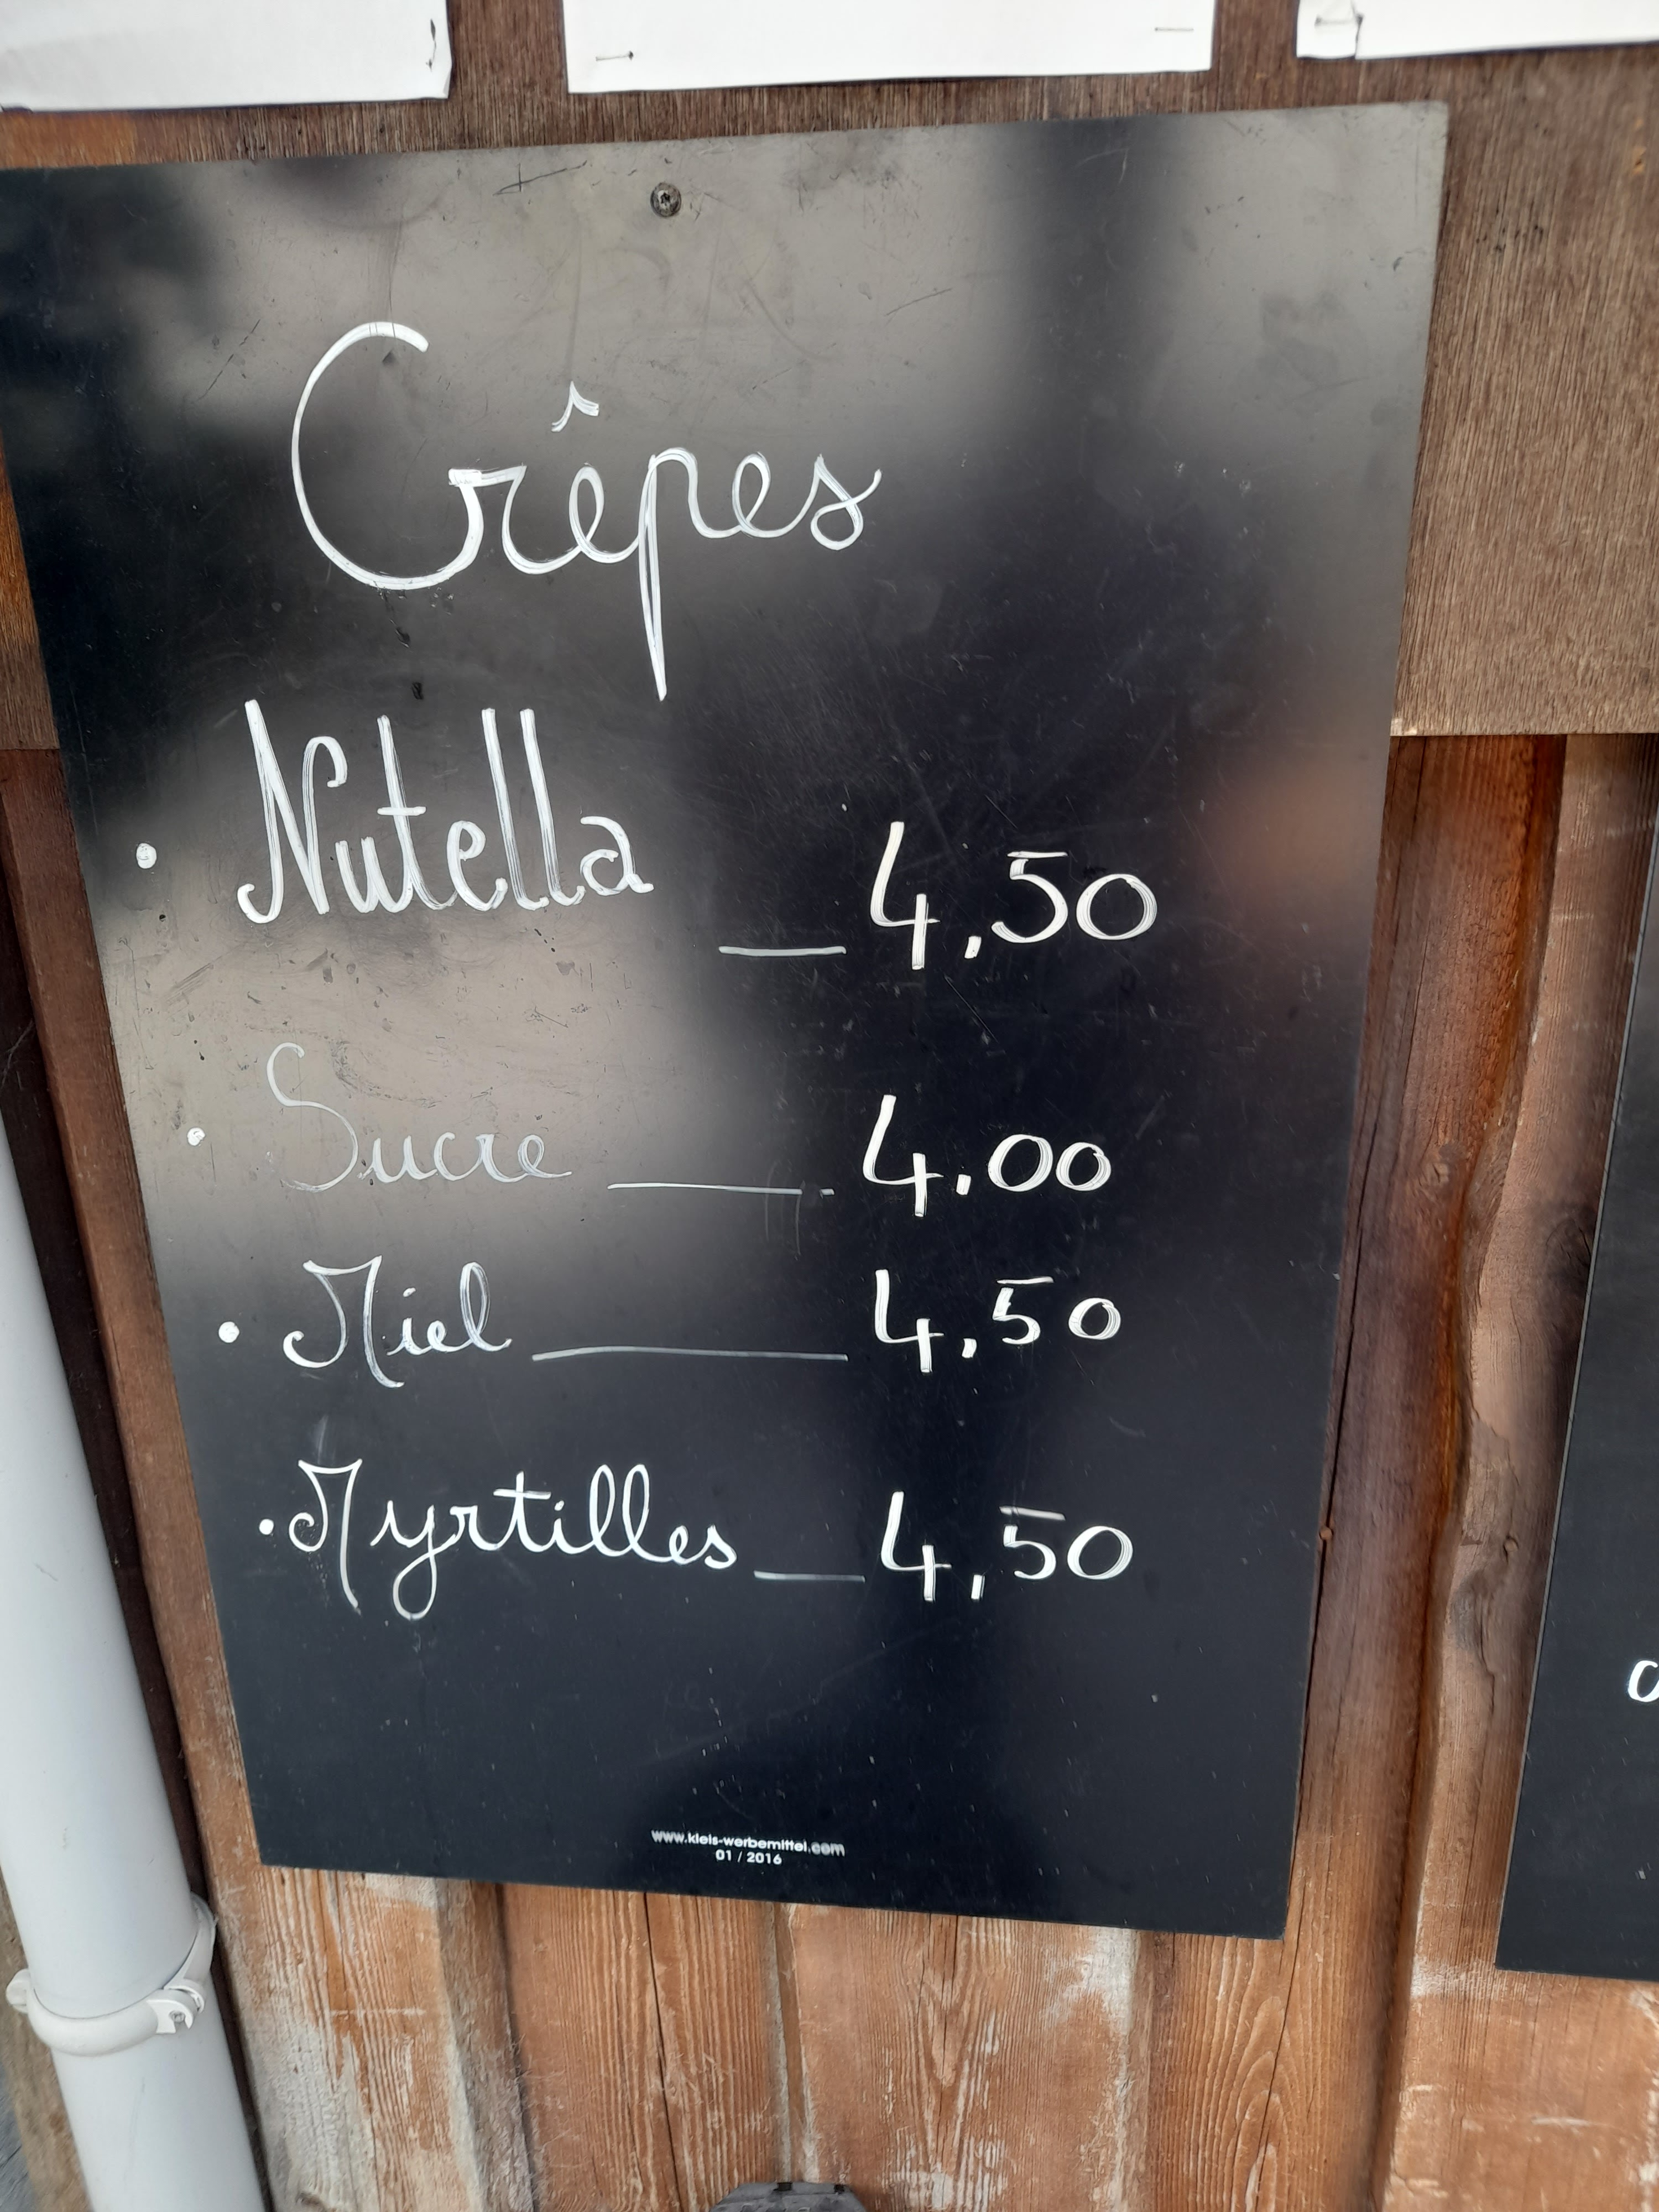 Crêpes
• Nutella __ 4,50
• Sucre ___ 4.00
• Miel ____ 4,50
• Myrtilles __ 4,50
www.kleis-werbemittel.com
01 / 2016